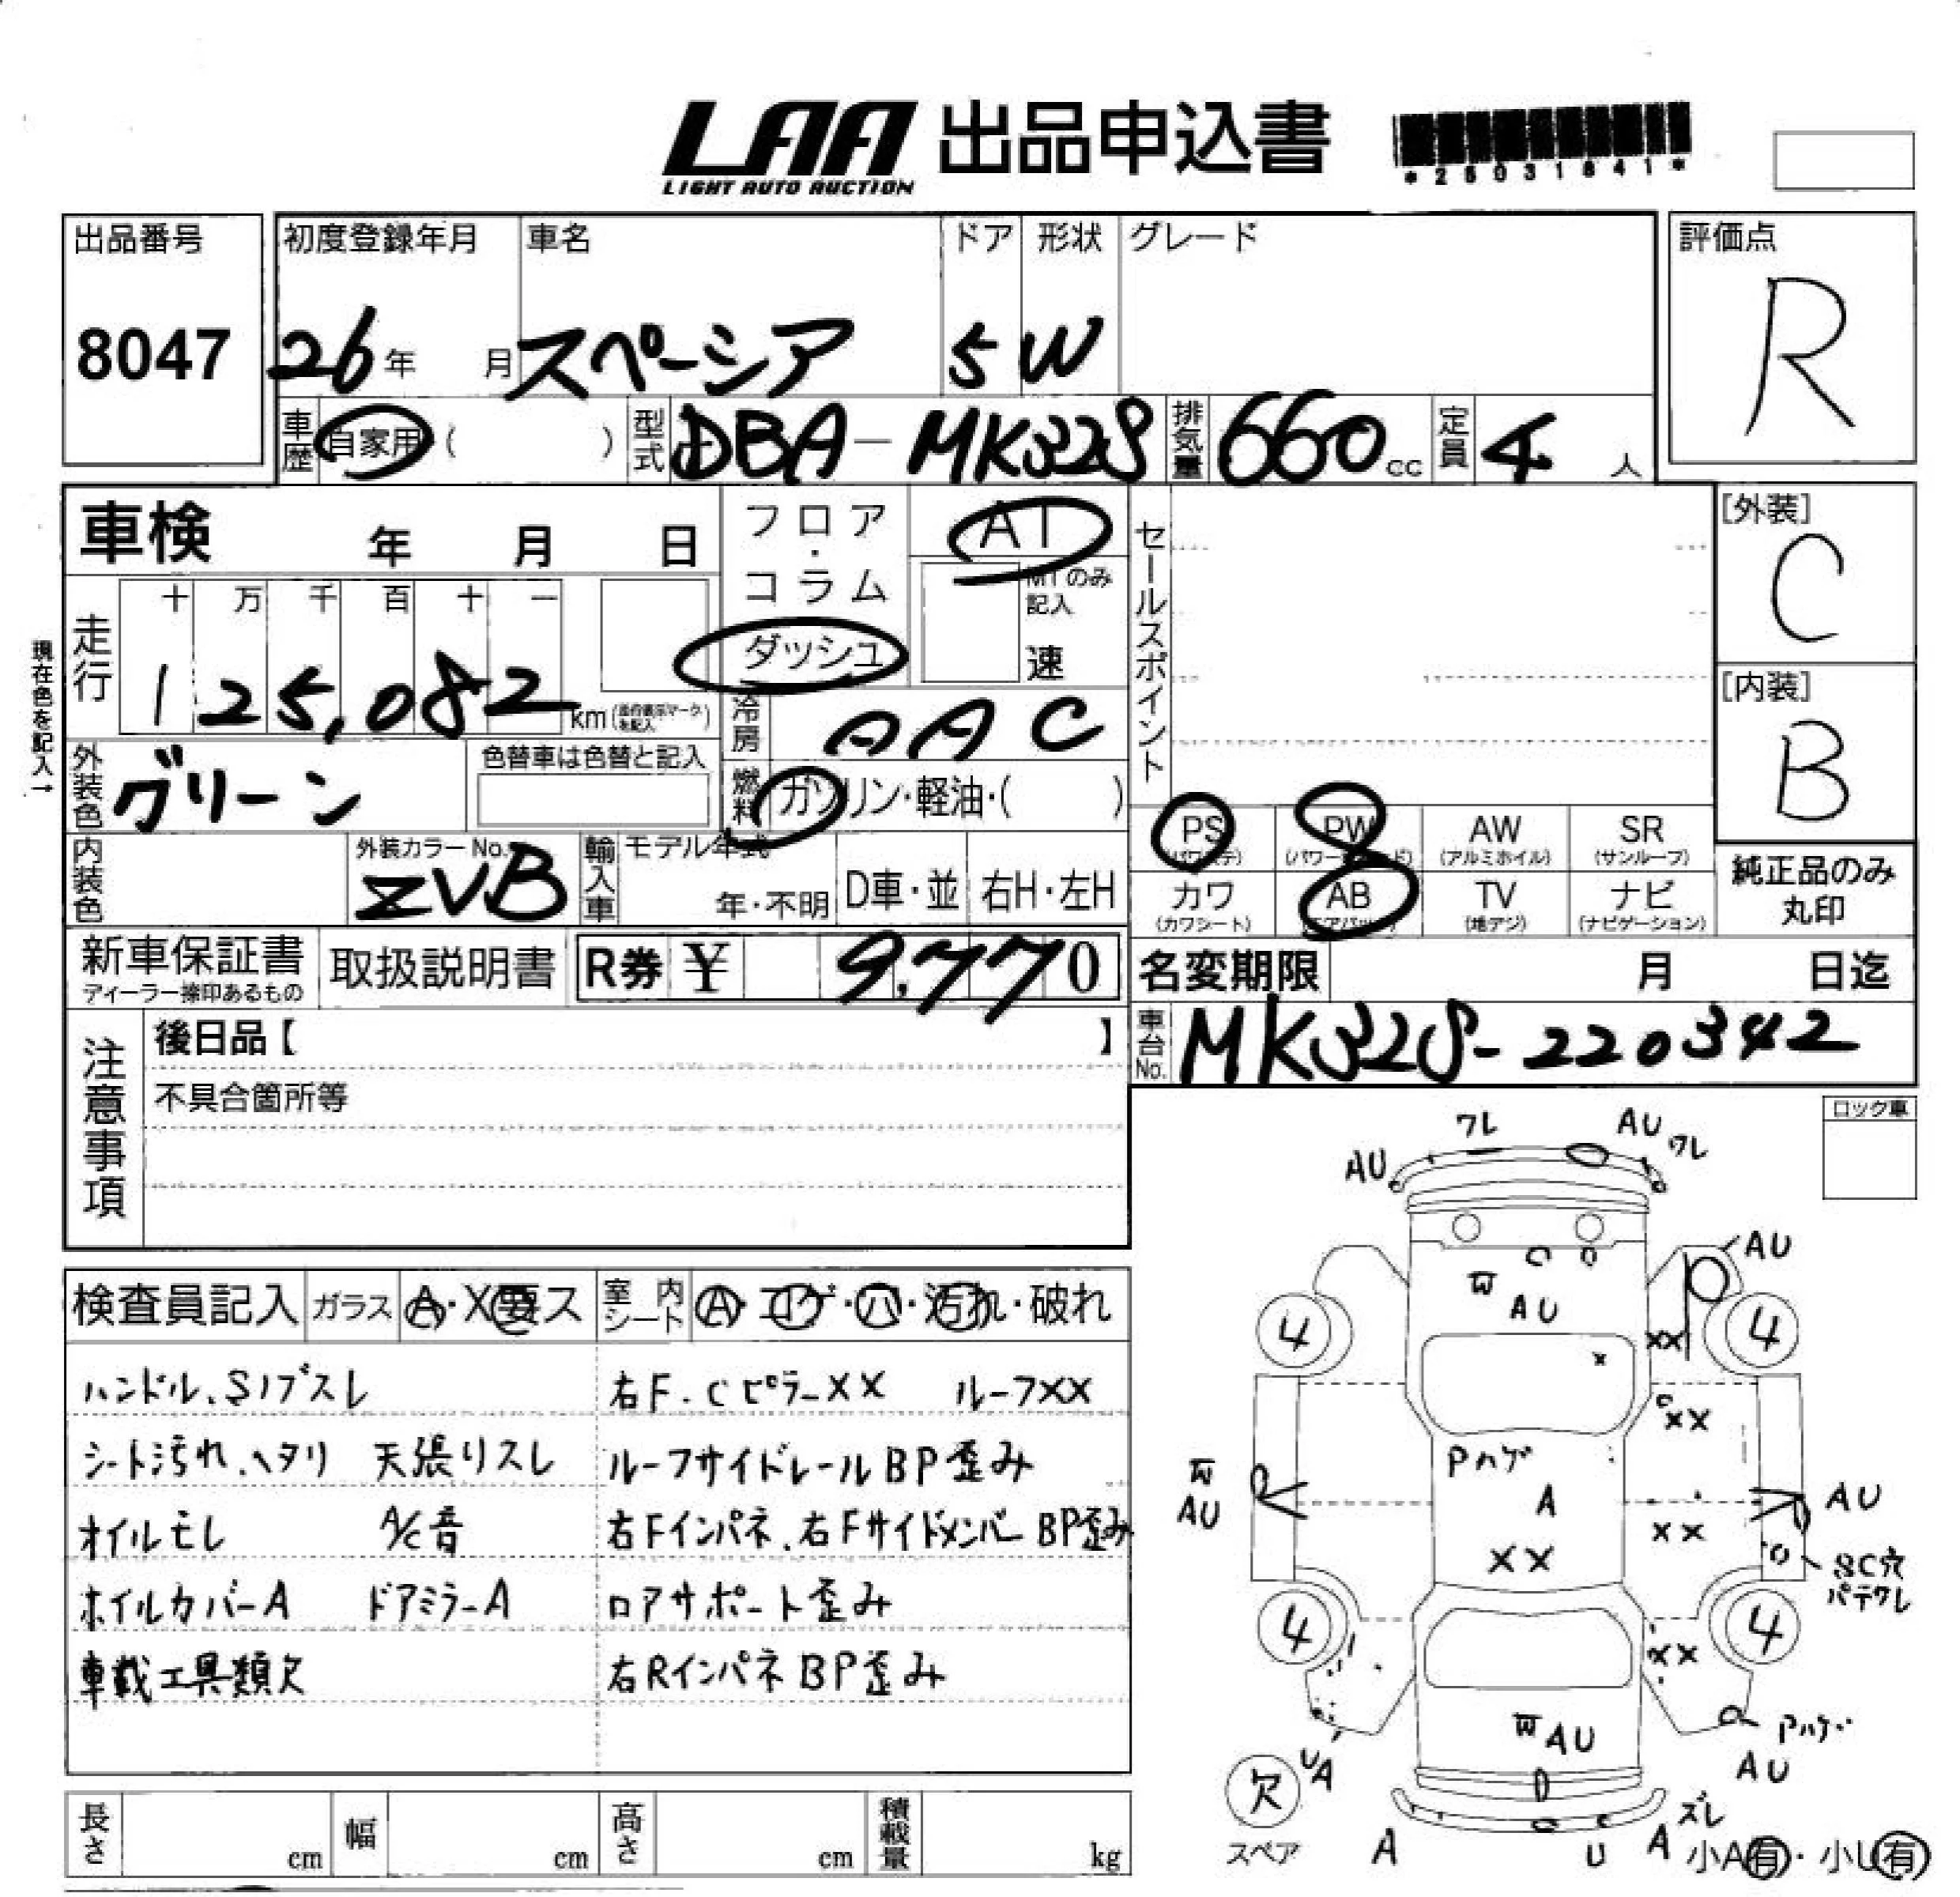 LAA 出品申込書
LIGHT AUTO AUCTION
*25031841*
出品番号 初度登録年月 車名 ドア 形状 グレード 評価点
8047 26年 月 スペーシア 5 W R
車歴 自家用 ( ) 型式 DBA-MK32S 排気量 660cc 定員 4 人
車検 年 月 日 フロア・コラム AT セールスポイント [外装]
C
十 万 千 百 十 一 MTのみ記入
ダッシュ 速
現在色を記入→
走行 125,082 km [内装]
B
冷房 AAC
外装色 グリーン 色替車は色替と記入 燃料 ガソリン・軽油・( )
PS PW AW SR
(パワステ) (パワーウィンド) (アルミホイル) (サンルーフ)
内装色 外装カラーNo. ZVB 輸入車 モデル年式 年・不明 D車・並 右H・左H
カワ AB TV ナビ 純正品のみ丸印
(カワシート) (エアバッグ) (地デジ) (ナビゲーション)
新車保証書 取扱説明書 R券 ¥ 9,770 名変期限 月 日迄
ディーラー捺印あるもの
注意事項 後日品【 】 車台No. MK32S-220342
不具合箇所等
ロック車
ワレ AU
AU ワレ
AU
W
AU
4 4
XX
XX
Pハゲ
W
AU A AU
XX
XX SC穴
パテワレ
4 4
XX
W AU Pハゲ
UA AU
欠
スペア
ズレ
A U A 小A有・小U有
検査員記入 ガラス A・X要ス 室内シート A・コゲ・ハ・汚れ・破れ
ハンドル、S/ブスレ 右F.Cピラー XX ルーフXX
シート汚れ、ヘタリ 天張りスレ ルーフサイドレールBP歪み
オイルモレ A/C音 右Fインパネ、右Fサイドメンバー BP歪み
ホイルカバーA ドアミラーA ロアサポート歪み
車載工具類欠 右RインパネBP歪み
長さ cm 幅 cm 高さ cm 積載量 kg